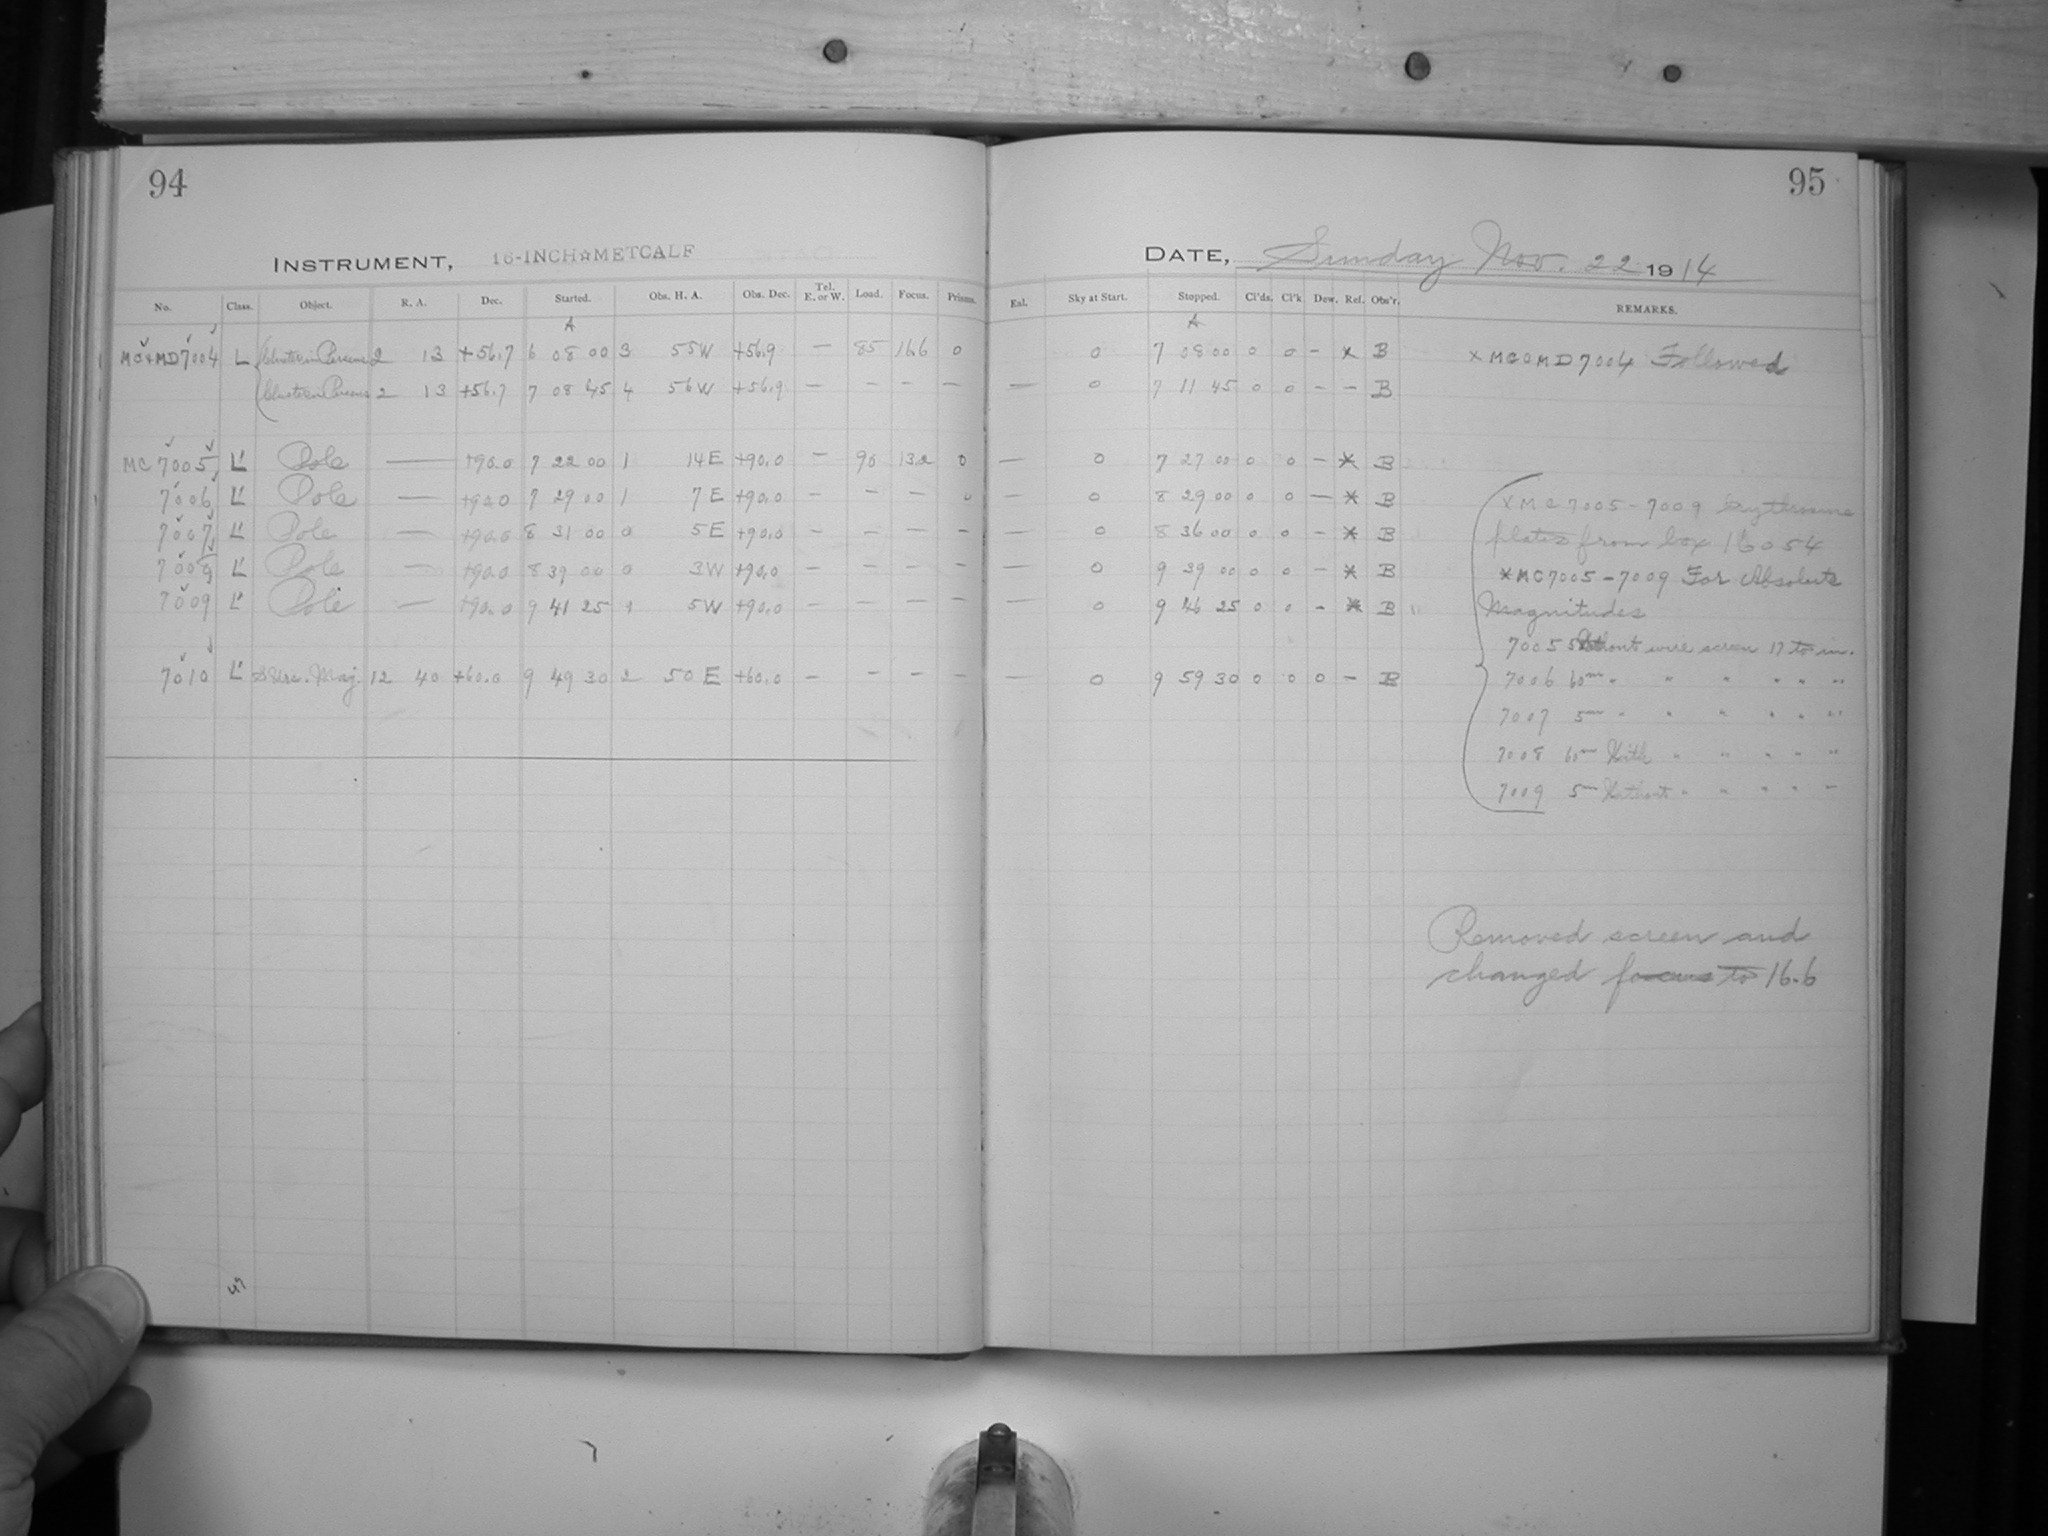 94
INSTRUMENT, 16-INCH☆METCALF
No. Class. Object. R. A. Dec. Started. Obs. H. A. Obs. Dec. Tel. E. or W. Load. Focus. Prisms.
A
MC+MD7004 L Cluster in Perseus 2 13 +56.7 6 08 00 3 55W +56.9 — 85 16.6 0
Cluster in Perseus 2 13 +56.7 7 08 45 4 56W +56.9 — — — —
MC 7005 L' Pole — +90.0 7 22 00 1 14E +90.0 — 90 13.2 0
7006 L' Pole — +90.0 7 29 00 1 7E +90.0 — — — 0
7007 L' Pole — +90.0 8 31 00 0 5E +90.0 — — — —
7008 L' Pole — +90.0 8 39 00 0 3W +90.0 — — — —
7009 L' Pole — +90.0 9 41 25 5W +90.0 — — — —
7010 L' Urs. Maj. 12 40 +60.0 9 49 30 2 50E +60.0 — — — —
95
DATE, Sunday Nov. 22 1914
Exl. Sky at Start. Stopped. Cl'ds. Cl'k. Dew. Ref. Obs'r. REMARKS.
A
0 7 08 00 0 0 — x B x MC&MD7004 Followed
— 0 7 11 45 0 0 — — B
— 0 7 27 00 0 0 — * B
— 0 8 29 00 0 0 — * B
— 0 8 36 00 0 0 — * B
— 0 9 39 00 0 0 — * B
— 0 9 46 25 0 0 — * B
— 0 9 59 30 0 0 0 — B
x MC 7005-7009 Erythrosine
plates from box 16054
*MC7005-7009 For Absolute
Magnitudes
7005 5 Without wire screen 17 to in.
7006 60m " " " " " "
7007 5m " " " " " "
7008 60m With " " " " "
7009 5m Without " " " " "
Removed screen and
changed focus to 16.6